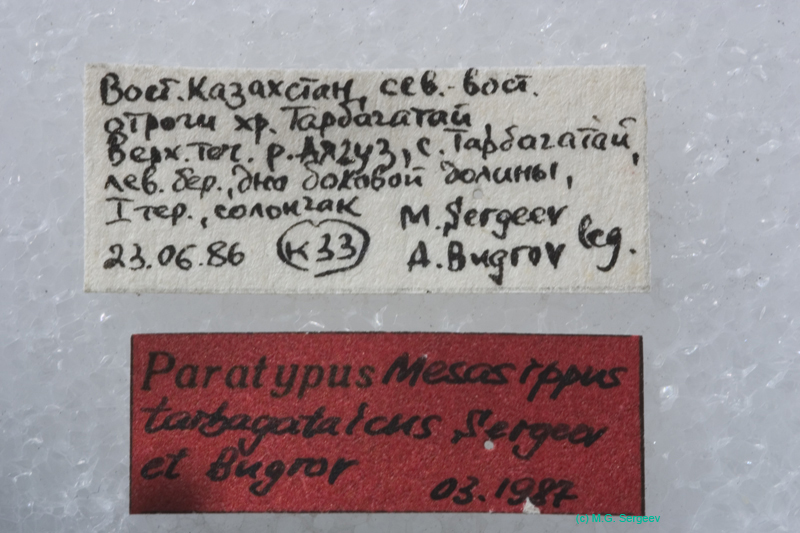 Вост. Казахстан, сев.-вост.
отроги хр. Тарбагатай
Верх. теч. р. Аягуз, с. Тарбагатай,
лев. бер., дно боковой долины,
I тер., солончак
M. Sergeev
23.06.86 К33 A. Bugrov leg.
Paratypus Mesasippus
tarbagataicus Sergeev
et Bugrov
03.1987
(c) M.G. Sergeev